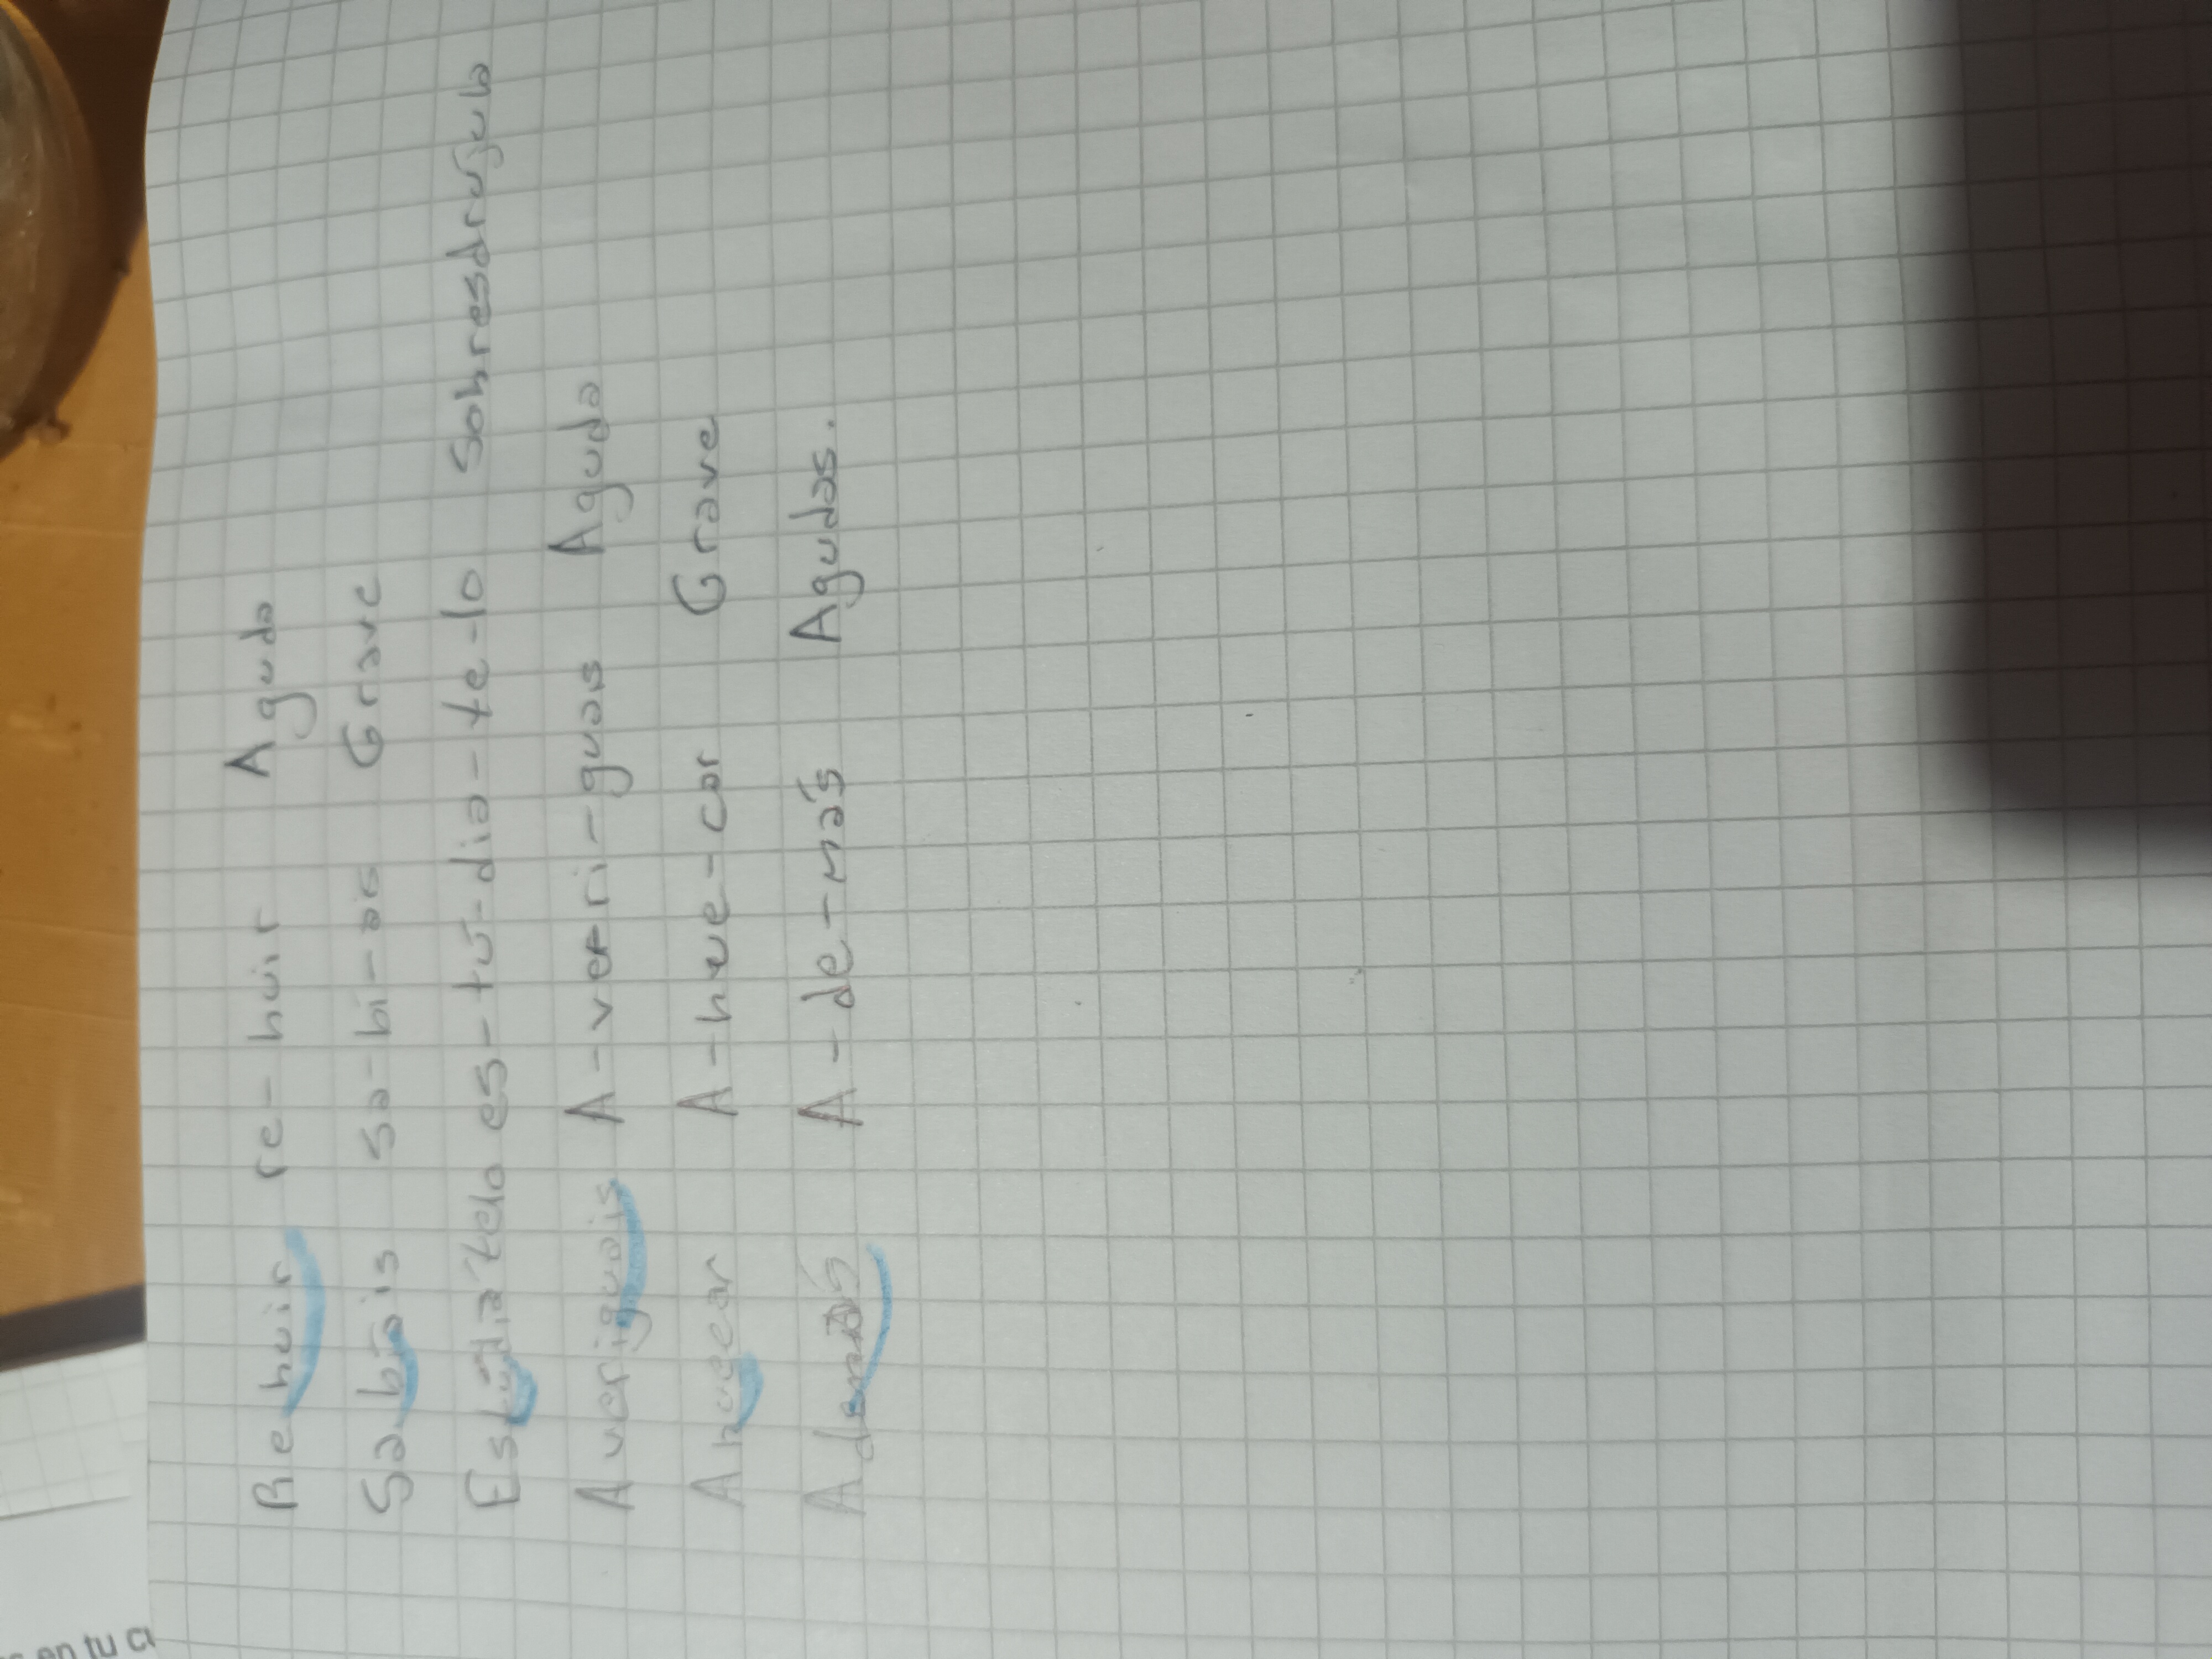 Rehuir re-huir Aguda
Sabíais Sa-bí-ais Grave
Estúdiatelo es-tú-dia-te-lo Sobresdrújula
Averiguais A-veri-guais Aguda
Ahuecar A-hue-car Grave
Además A-de-más Agudas.
s en tu cu